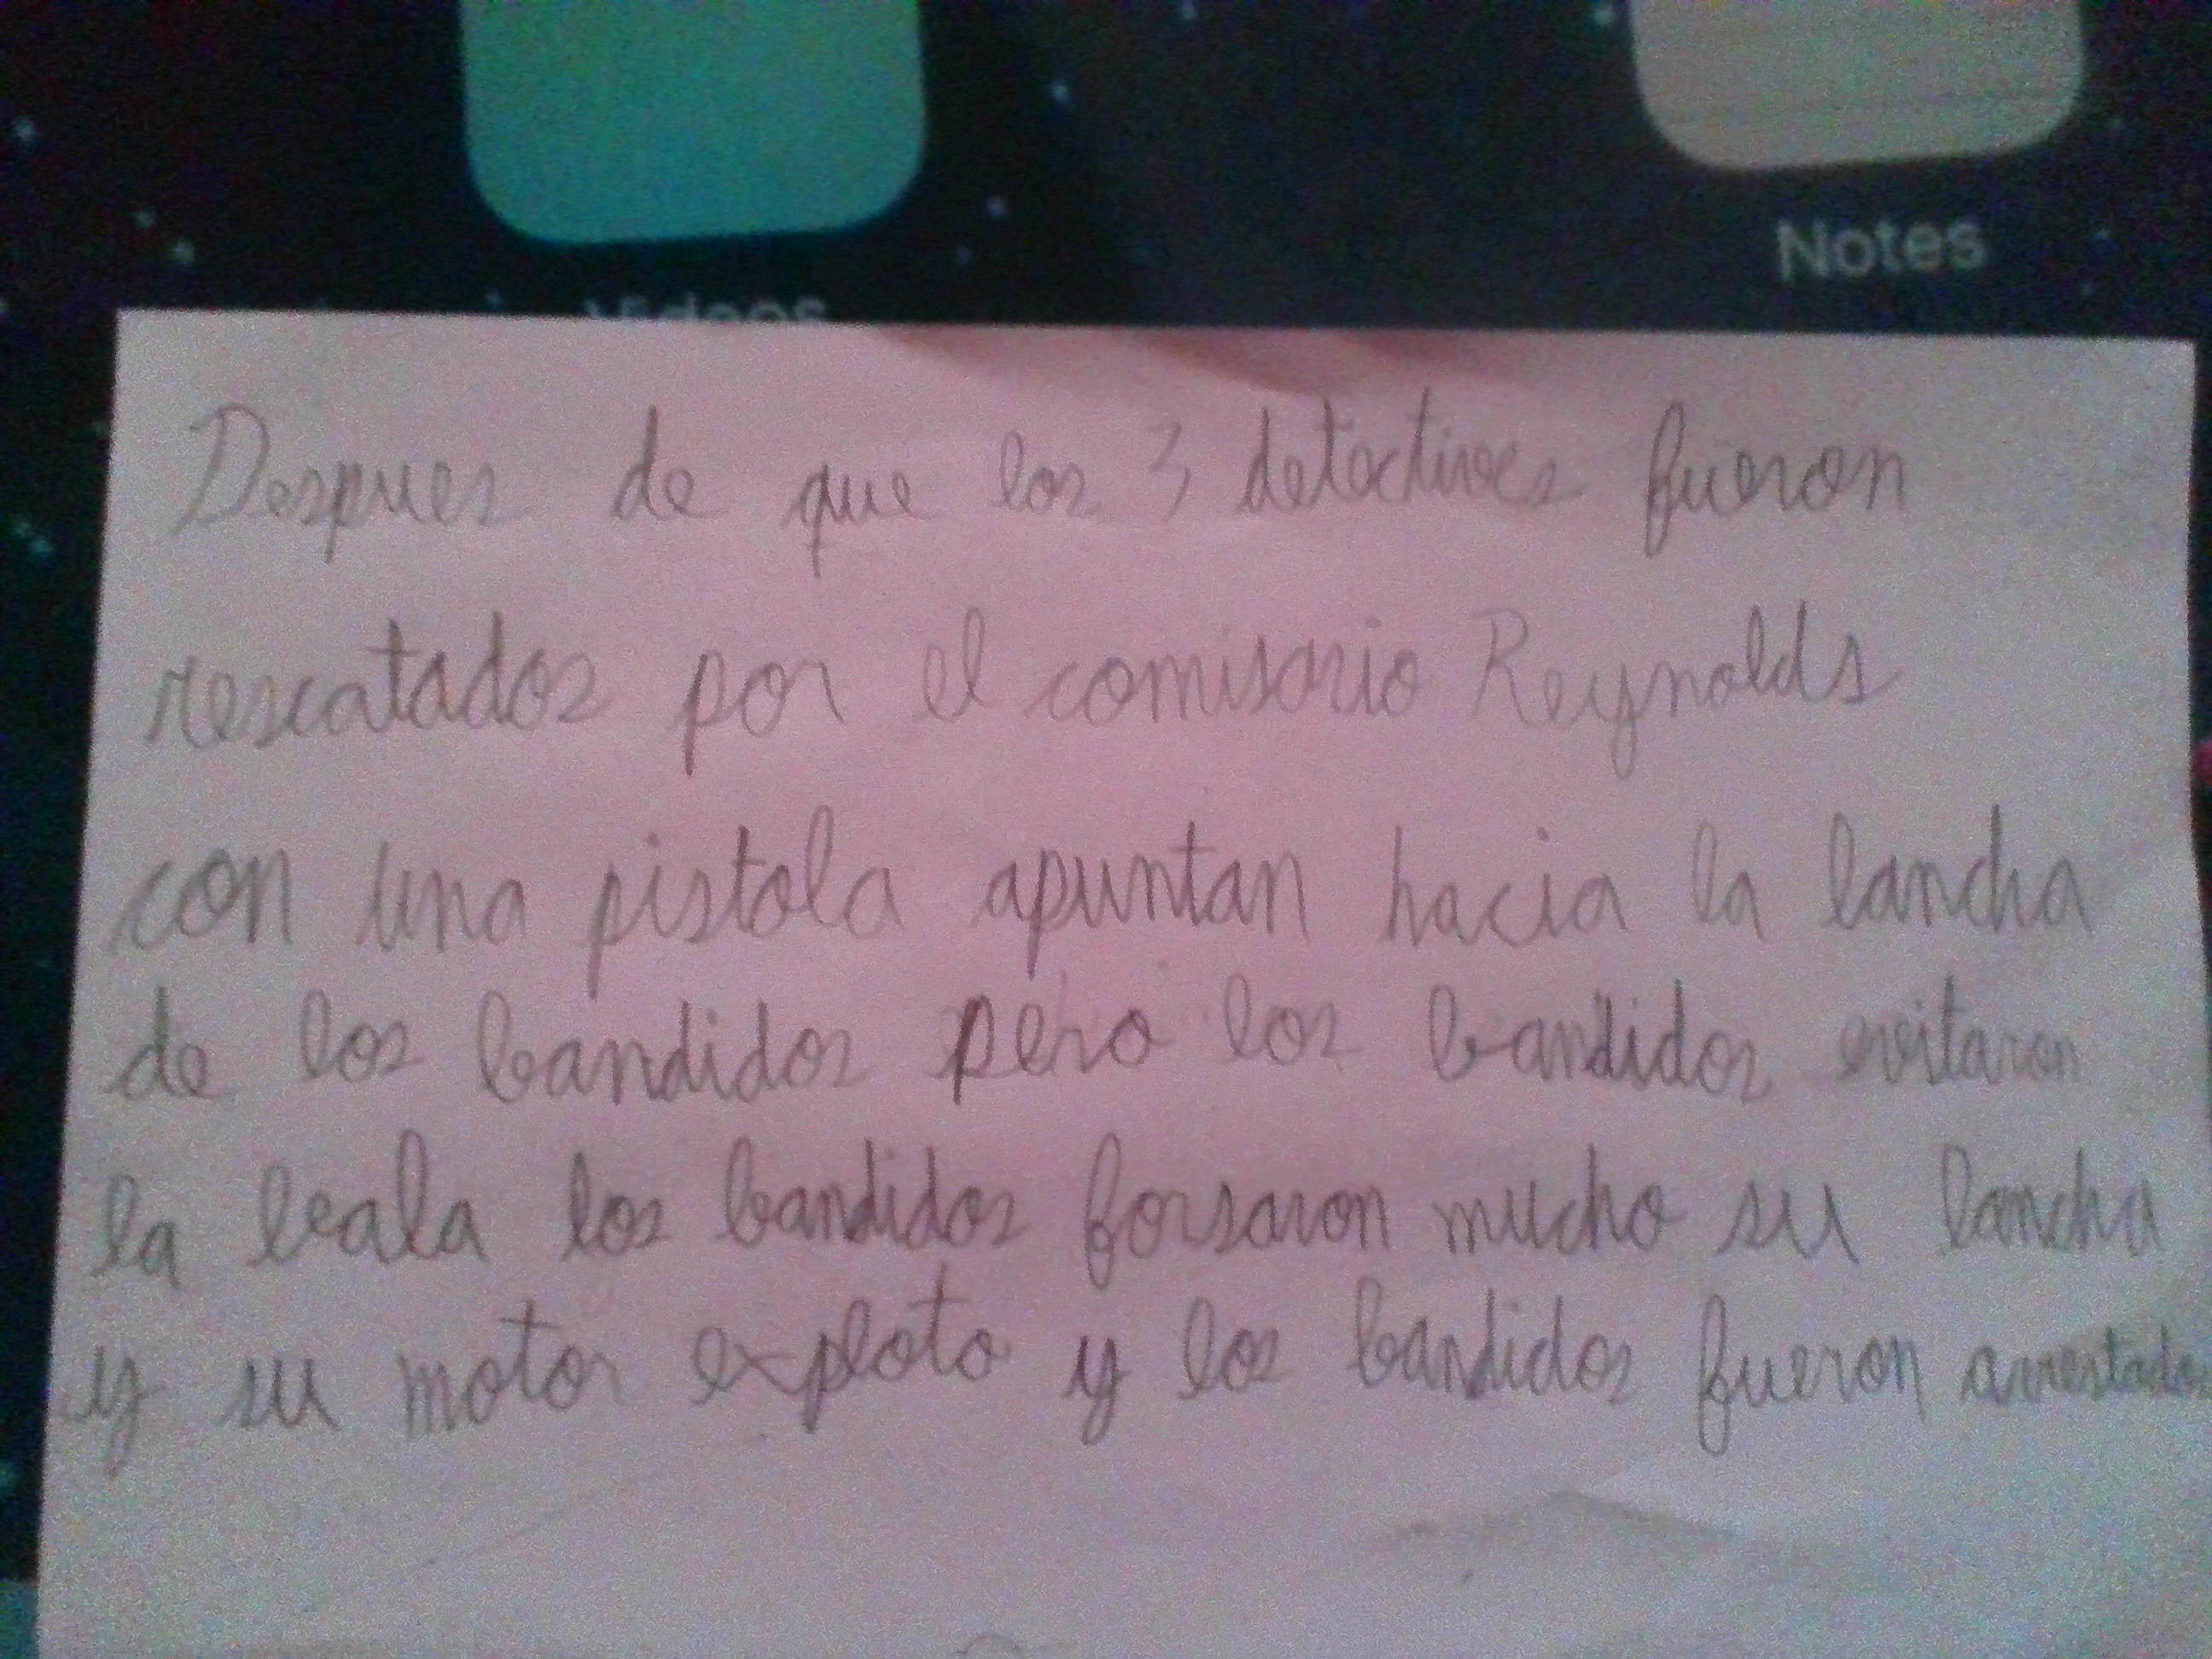 Notes
Videos
Despues de que los 3 detectives fueron
rescatados por el comisario Reynolds
con una pistola apuntan hacia la lancha
de los bandidos pero los bandidos evitaron
la bala los bandidos forsaron mucho su lancha
y su motor exploto y los bandidos fueron arrestados